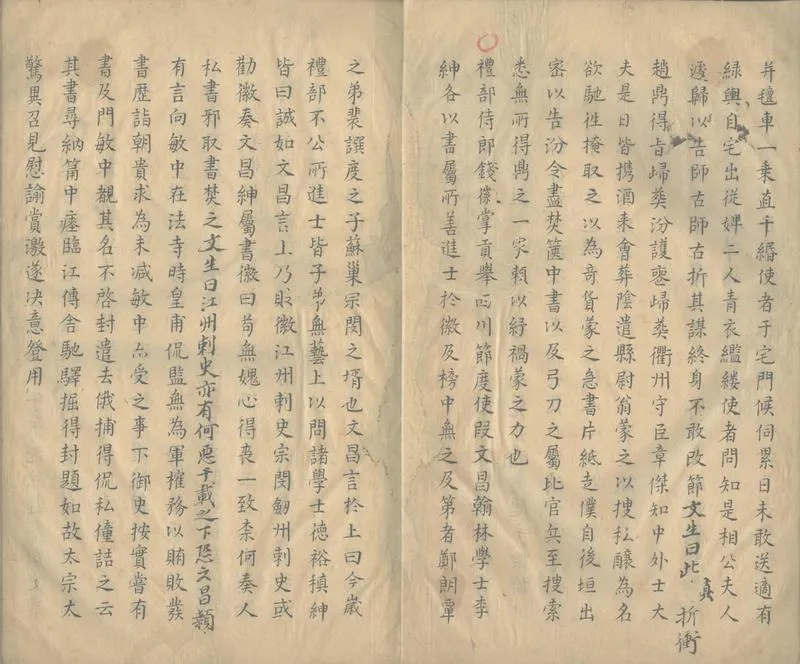 并氊車一乗直千緡使者于宅門候伺累日未敢送適有
緑輿自宅出從婢二人青衣繿縷使者問知是相公夫人
遽歸以告師古師古折其謀終身不敢改節文生曰此真折衝
趙鼎得旨歸葬汾護喪歸葬衢州守臣章傑知中外士大
夫是日皆攜酒来會葬陰遣縣尉翁蒙之以搜私釀為名
欲馳徃掩取之以為奇貨蒙之急書片紙走僕自後垣出
密以告汾令盡焚篋中書以及弓刀之屬比官兵至搜索
悉無所得鼎之一家頼以紓禍蒙之力也
禮部侍郎錢徽掌貢舉西川節度使段文昌翰林學士李
紳各以書屬所善進士於徽及榜中無之及第者鄭朗覃
之弟裴譔度之子蘇巢宗閔之壻也文昌言於上曰今歲
禮部不公所進士皆子弟無藝上以問諸學士德裕稹紳
皆曰誠如文昌言上乃貶徽江州刺史宗閔劒州刺史或
勸徽奏文昌紳屬書徽曰茍無媿心得喪一致柰何奏人
私書邪取書焚之文生曰江州刺史亦有何惡千載之下恐文昌顙
有言向敏中在法寺時皇甫侃監無為軍榷務以賄敗發
書歴詣朝貴求為末減敏中亦受之事下御史按實嘗有
書及門敏中覩其名不啓封遣去俄捕得侃私僮詰之云
其書尋納筩中瘞臨江傳舎馳驛掘得封題如故太宗大
驚異召見慰諭賞激遂決意登用